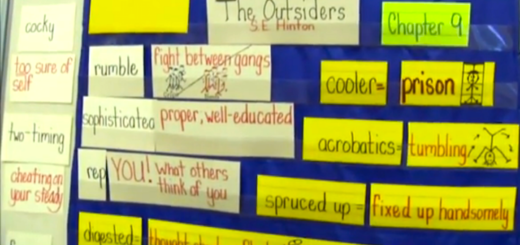 The Outsiders
S.E. Hinton
Chapter 9
cocky
too sure of
self
two-timing
cheating on
your steady
rumble
fight between gangs
sophisticated
proper, well-educated
rep
YOU! What others
think of you
digested=
cooler=
prison
acrobatics=
tumbling
spruced up=
fixed up handsomely